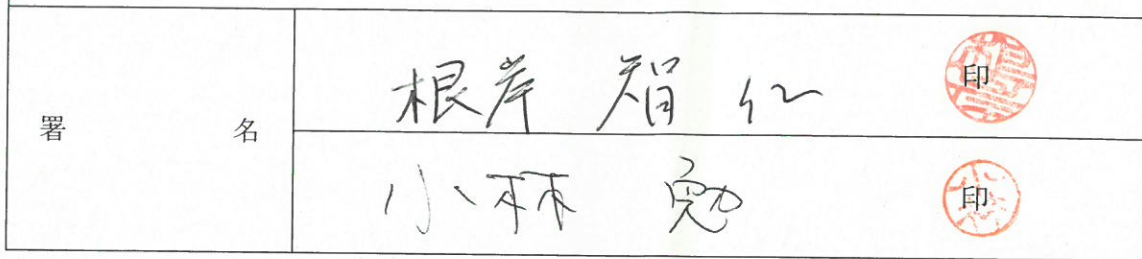 署名
根岸 智仁 印
小林 勉 印